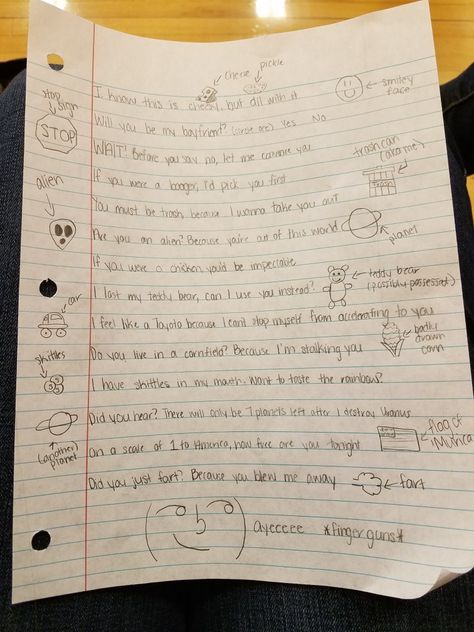 cheese pickle
I know this is cheesy, but dill with it
smiley face
stop sign
STOP
Will you be my boyfriend? (circle one) Yes No
WAIT! Before you say no, let me convince you
trashcan (aka me)
If you were a booger, I'd pick you first
Trash
alien
You must be trash, because I wanna take you out
Are you an alien? Because you're out of this world
planet
If you were a chicken, you'd be impeccable
I lost my teddy bear, can I use you instead?
teddy bear (possibly possessed)
car
I feel like a Toyota because I can't stop myself from accelerating to you
Do you live in a cornfield? Because I'm stalking you
badly drawn corn
skittles
I have skittles in my mouth. Want to taste the rainbow?
Did you hear? There will only be 7 planets left after I destroy Uranus
(another) planet
On a scale of 1 to America, how free are you tonight
flag of 'Murica
Did you just fart? Because you blew me away
fart
ayeeeee *finger guns*